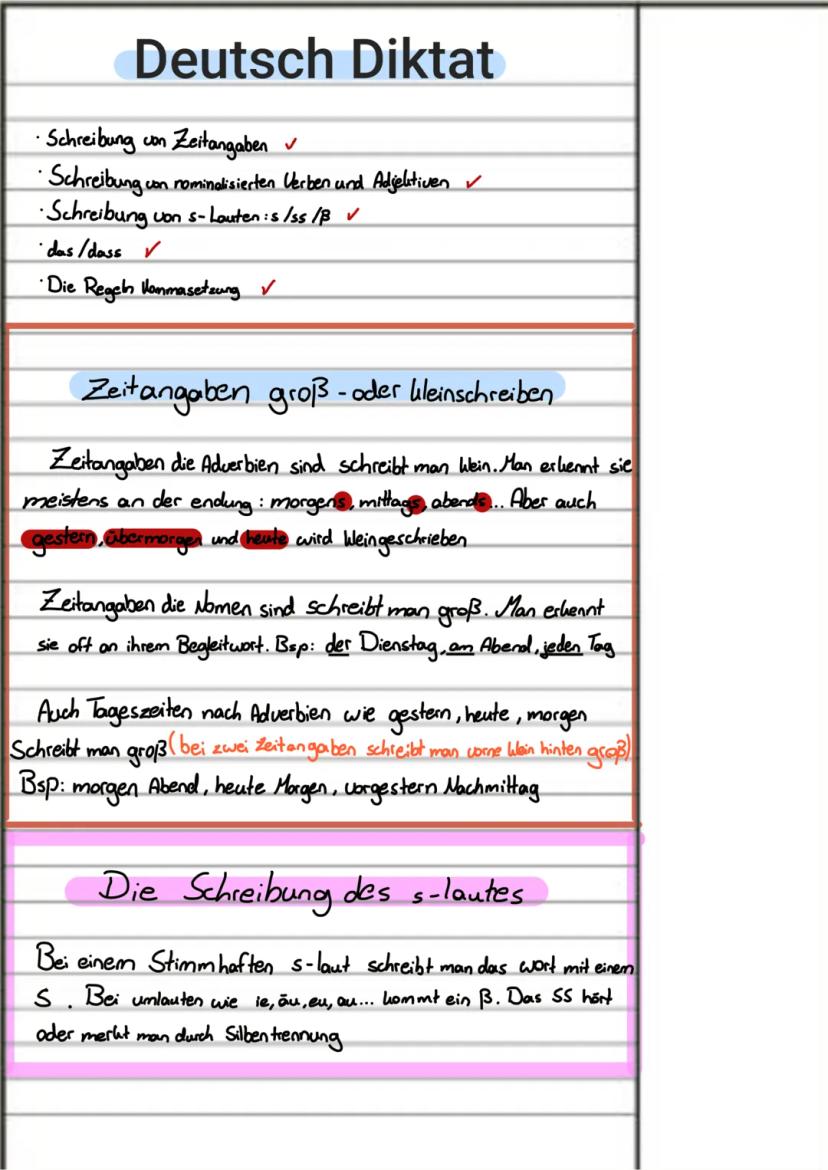 Deutsch Diktat
· Schreibung von Zeitangaben ✓
· Schreibung von nominalisierten Verben und Adjektiven ✓
· Schreibung von s-Lauten: s/ss/ß ✓
· das/dass ✓
· Die Regeln Kommasetzung ✓
Zeitangaben groß-oder kleinschreiben
Zeitangaben die Adverbien sind schreibt man klein. Man erkennt sie
meistens an der endung: morgens, mittags, abends... Aber auch
gestern, übermorgen und heute wird kleingeschrieben
Zeitangaben die Nomen sind schreibt man groß. Man erkennt
sie oft an ihrem Begleitwort. Bsp: der Dienstag, am Abend, jeden Tag
Auch Tageszeiten nach Adverbien wie gestern, heute, morgen
Schreibt man groß (bei zwei Zeitangaben schreibt man vorne klein hinten groß)
Bsp: morgen Abend, heute Morgen, vorgestern Nachmittag
Die Schreibung des s-lautes
Bei einem Stimmhaften s-laut schreibt man das wort mit einem
S. Bei umlauten wie ie, äu, eu, au... kommt ein ß. Das SS hört
oder merkt man durch Silbentrennung